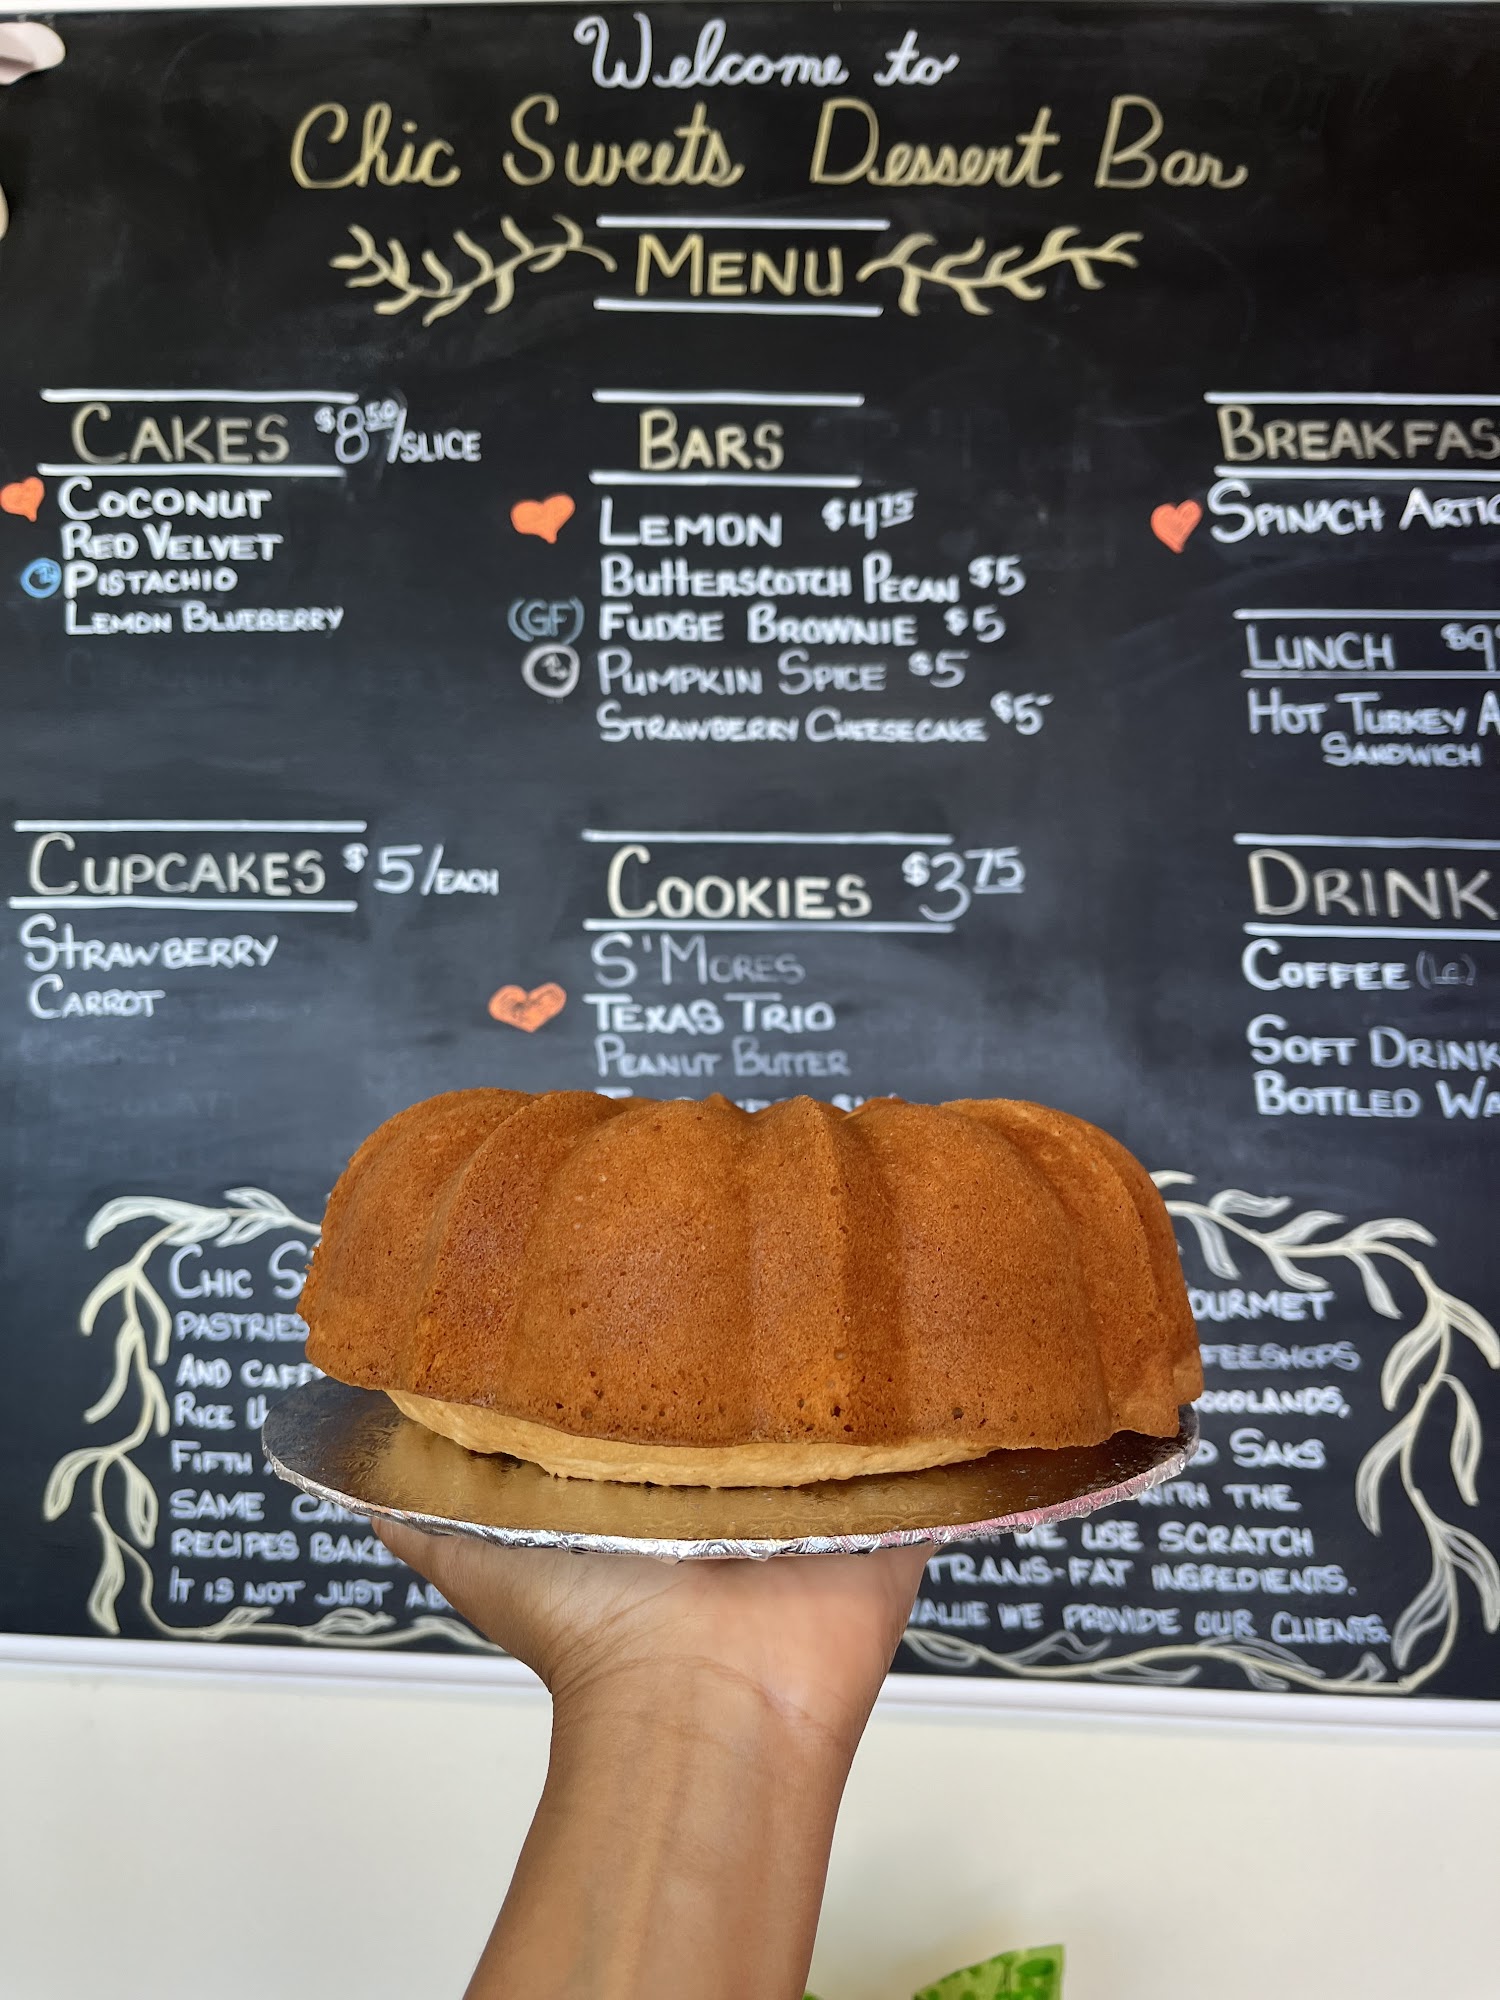 Welcome to
Chic Sweets Dessert Bar
MENU
CAKES $8.50/SLICE
COCONUT
RED VELVET
PISTACHIO
LEMON BLUEBERRY
BARS
LEMON $4.75
BUTTERSCOTCH PECAN $5
(GF) FUDGE BROWNIE $5
PUMPKIN SPICE $5
STRAWBERRY CHEESECAKE $5
BREAKFAS
SPINACH ARTIC
LUNCH $9
HOT TURKEY A
SANDWICH
CUPCAKES $5/EACH
STRAWBERRY
CARROT
COOKIES $3.75
S'MORES
TEXAS TRIO
PEANUT BUTTER
DRINK
COFFEE
SOFT DRINK
BOTTLED WA
CHIC S OURMET
PASTRIES FEESHOPS
AND CAFE OCOLANDS,
RICE U SAKS
FIFTH WITH THE
SAME WE USE SCRATCH
RECIPES BAKE TRANS-FAT INGREDIENTS.
IT IS NOT JUST VALUE WE PROVIDE OUR CLIENTS.